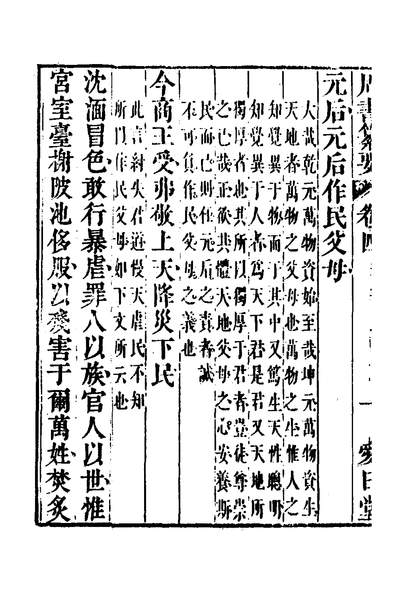 卷四 一 愛日堂
元后元后作民父母
大哉乾元萬物資始至哉坤元萬物資生
天地者萬物之父母也萬物之生惟人之
知覺異于物而于其中又篤生天性聰明
知覺異于人者為天下君是君又天地所
獨厚者也其所以獨厚于君者豈徒尊崇
之已哉正欲其體天地父母之心安養斯
民而已則任元后之責者誠
不可負作民父母之義也
今商王受弗敬上天降災下民
此言紂失君道慢天虐民不知
所以作民父母如下文所云也
沈湎冒色敢行暴虐罪人以族官人以世惟
宮室臺榭陂池侈服以殘害于爾萬姓焚炙